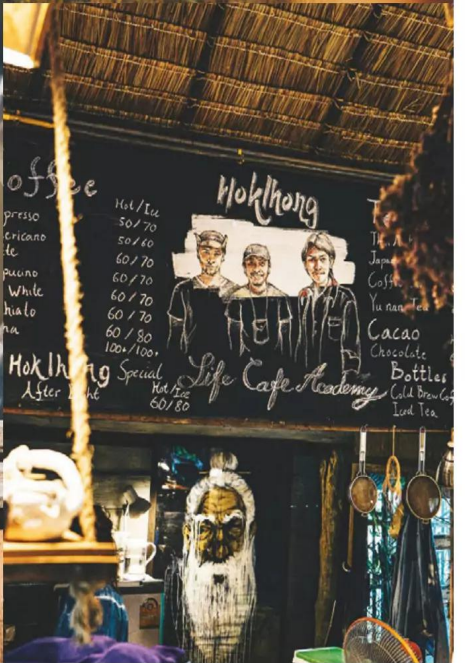 offee
Hot/Ice
presso 50/70
ericano 50/60
te 60/70
pucino 60/70
White 60/70
hiato 60/70
ha 60/80
100+/100+
Hoklhong Special
After Hot/Ice
60/80
Hoklhong
Life Cafe Academy
Japa
Coff
Yunnan Tea
Cacao
Chocolate
Bottles
Cold Brew Cof
Iced Tea